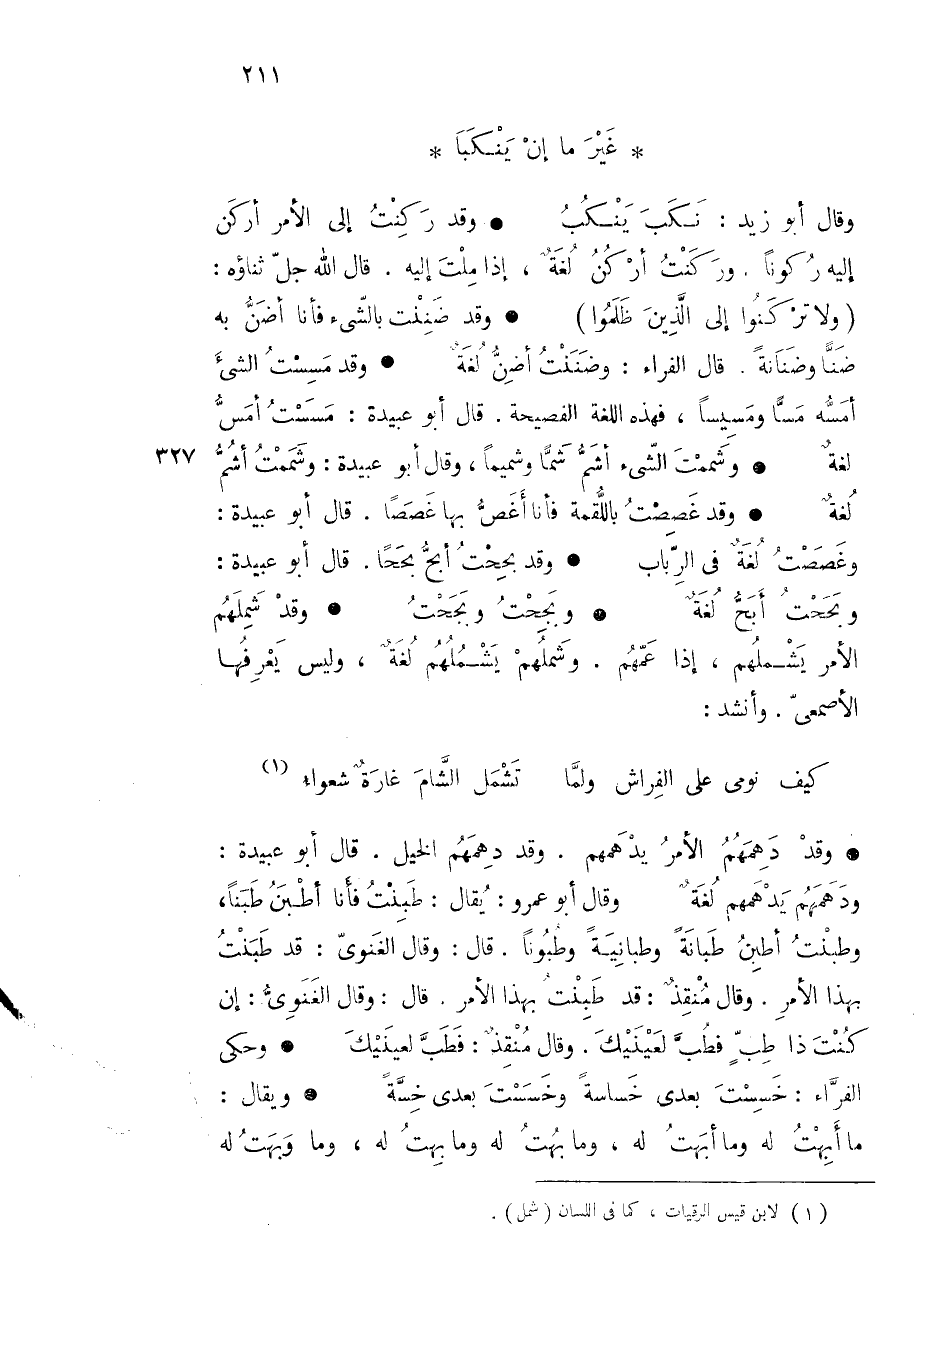 ٢١١
* غَيْرَ ما إنْ يَنْـكَبَا *
وقال أبو زيد : نَـكَبَ يَنْـكُبُ ● وقد رَكِنْتُ إلى الأمر أركَن
إليه رُكوناً . ورَكَنْتُ أرْكُنُ لُغَةٌ ، إذا مِلْتَ إليه . قال الله جلّ ثناؤه :
( ولا تَرْكَنُوا إلى الَّذِينَ ظَلَمُوا ) ● وقد ضَنِنْت بالشّىء فأنا أضَنُّ به
ضَنًّا وضَنَانةً . قال الفراء : وضَنَنْتُ أضِنُّ لُغَةٌ ● وقد مَسِسْتُ الشئَ
أمَسُّه مَسًّا ومَسِيساً ، فهذه اللغة الفصيحة . قال أبو عبيدة : مَسَسْتُ أمَسُّ
لغةٌ ● وشَمِمْتَ الشّىء أشَمُّ شَمًّا وشميماً ، وقال أبو عبيدة : وشَمَمْتُ أشُمُّ ٣٢٧
لُغةٌ ● وقد غَصِصْتُ باللُّقمة فأنا أَغَصُّ بها غَصَصًا . قال أبو عبيدة :
وغَصَصْتُ لُغَةٌ فى الرِّباب ● وقد بحِحْتُ أبحُّ بحَحًا . قال أبو عبيدة :
وبَحَحْتُ أَبَحُّ لُغَةٌ ● وبَجِحْتُ وبَجَحْتُ ● وقدْ شَمِلَهُم
الأمر يَشْـملهم ، إذا عَمّهُم . وشَمَلَهُمْ يَشْـمُلُهُم لُغَةٌ ، وليس يَعْرِفُها
الأصمعىّ . وأنشد :
كيف نومى على الفِراش ولمَّا تَشْمَل الشَّامَ غارَةٌ شعواء (١)
● وقدْ دَهِمَهُمُ الأمرُ يدْهَمهم . وقد دهِمَهُم الخيل . قال أبو عبيدة :
ودَهَمَهُم يَدْهَمهم لُغَةٌ وقال أبو عمرو : يُقال : طَبِنْتُ فأنا أطْبَنُ طَبَناً ،
وطبنْتُ أطبِنُ طَبانَةً وطبانِيَـةً وطُبُوناً . قال : وقال الغَنوىّ : قد طَبَنْتُ
بهذا الأمرِ . وقال مُنْقِذٌ : قد طَبِنْتُ بهذا الأمر . قال : وقال الغَنَوِىُّ : إن
كُنْتَ ذا طِبٍّ فطُبَّ لعَيْنَيْكَ . وقال مُنْقِذٌ : فَطَبَّ لعينَيْكَ ● وحكى
الفرَّاء : خَسِسْتَ بعدى خَساسةً وخَسَسْتَ بعدى خِسَّةً ● ويقال :
ما أَبِهْتُ له وما أبَهَتُ له ، وما بُهْتُ له وما بِهتُ له ، وما وَبَهَتُ له
(١) لابن قيس الرقيات ، كما فى اللسان ( شمل ) .